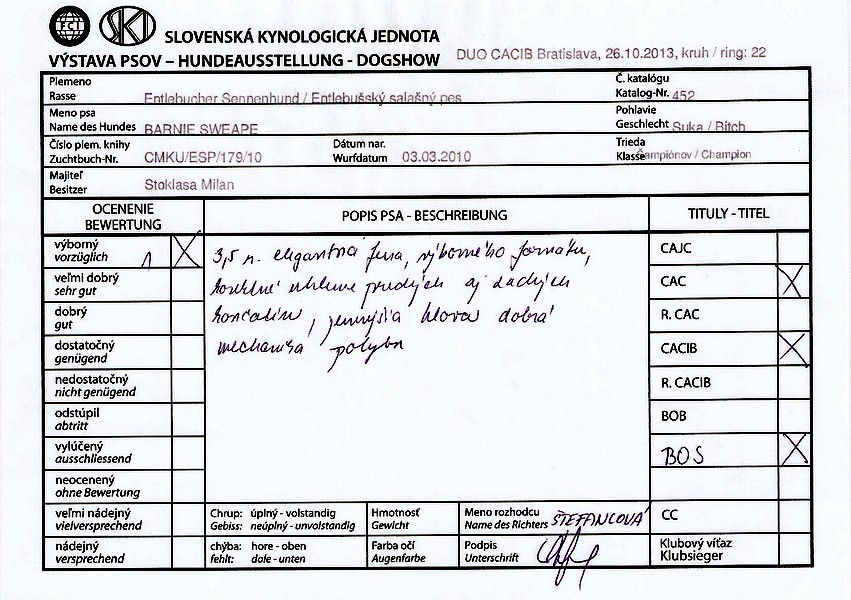 FCI SKJ SLOVENSKÁ KYNOLOGICKÁ JEDNOTA
VÝSTAVA PSOV – HUNDEAUSSTELLUNG - DOGSHOW DUO CACIB Bratislava, 26.10.2013, kruh / ring: 22
Plemeno
Rasse Entlebucher Sennenhund / Entlebušský salašný pes
Č. katalógu
Katalog-Nr. 452
Meno psa
Name des Hundes BARNIE SWEAPE
Pohlavie
Geschlecht Suka / Bitch
Číslo plem. knihy
Zuchtbuch-Nr. CMKU/ESP/179/10
Dátum nar.
Wurfdatum 03.03.2010
Trieda
Klasse Šampiónov / Champion
Majiteľ
Besitzer Stoklasa Milan
OCENENIE
BEWERTUNG
POPIS PSA - BESCHREIBUNG
TITULY - TITEL
výborný
vorzüglich 1 X
veľmi dobrý
sehr gut
dobrý
gut
dostatočný
genügend
nedostatočný
nicht genügend
odstúpil
abtritt
vylúčený
ausschliessend
neocenený
ohne Bewertung
veľmi nádejný
vielversprechend
nádejný
versprechend
3,5 r. elegantná fena, výborného formátu,
predných aj zadných
končatín, jemnejšia hlava dobrá
mechanika pohybu
CAJC
CAC X
R. CAC
CACIB X
R. CACIB
BOB
BOS X
CC
Klubový víťaz
Klubsieger
Chrup: úplný - volstandig
Gebiss: neúplný - unvolstandig
Hmotnosť
Gewicht
Meno rozhodcu
Name des Richters ŠTEFANCOVÁ
chýba: hore - oben
fehlt: dole - unten
Farba očí
Augenfarbe
Podpis
Unterschrift